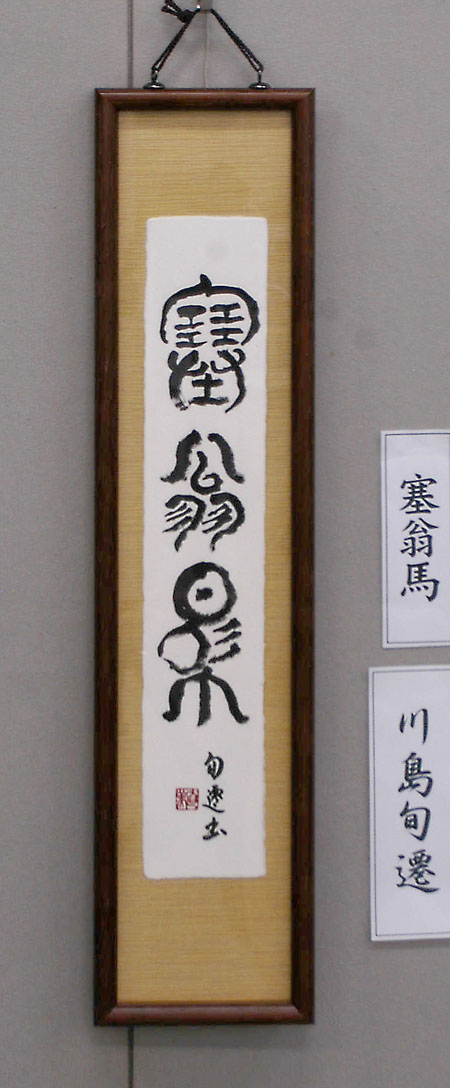 塞翁馬
旬遷書
塞翁馬
川島旬遷